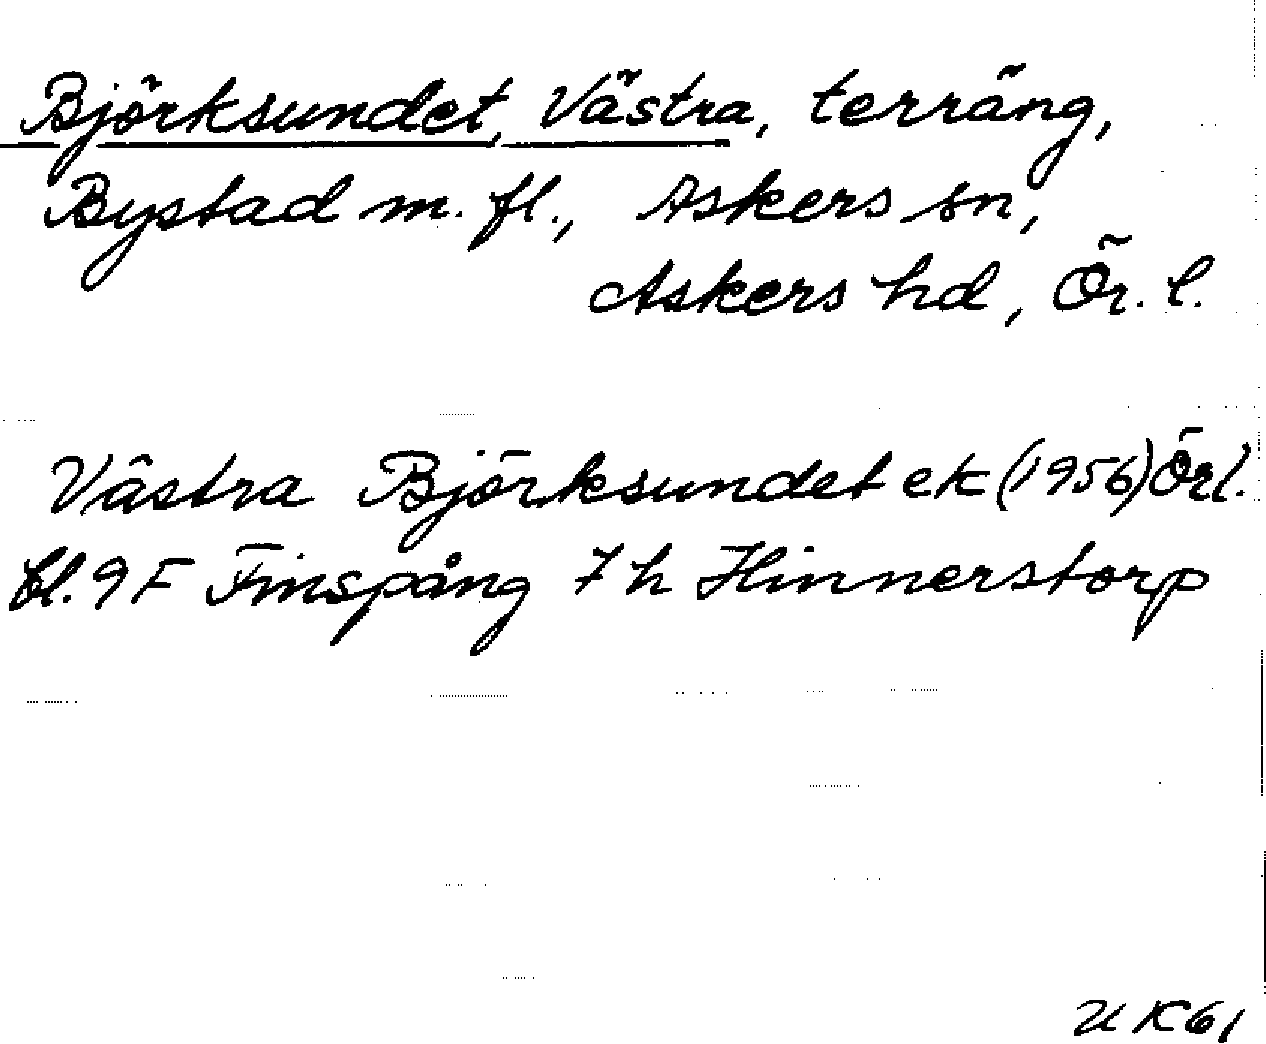 Björksundet, Västra, terräng,
Bystad m. fl., Askers sn,
Askers hd, Ör. l.
Västra Björksundet ek (1956) Örl.
bl. 9 F Finspång 7 h Hinnerstorp
UK61